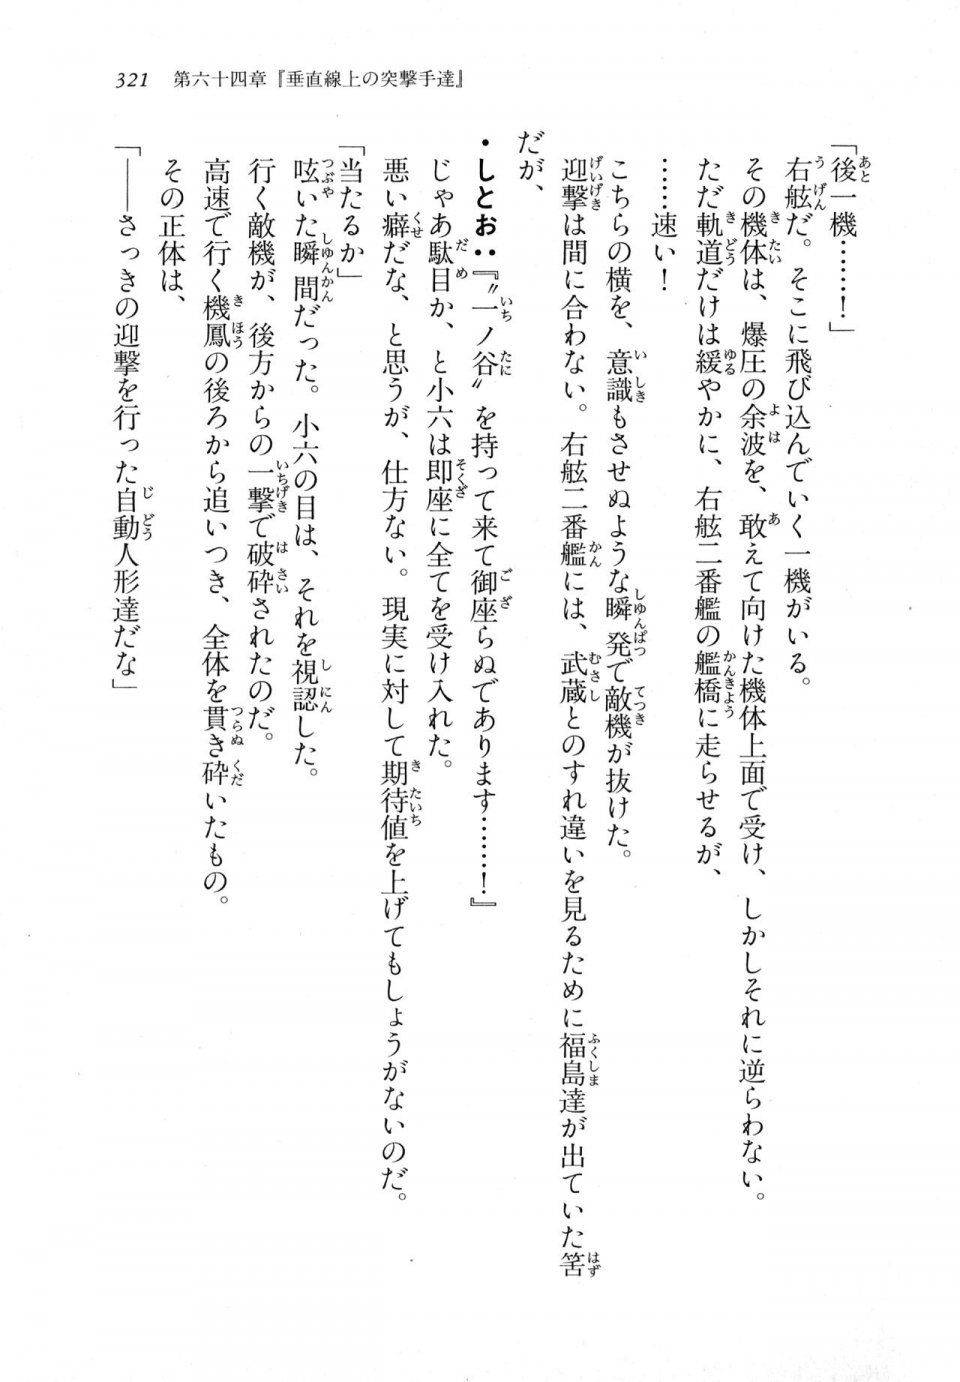 321　第六十四章『垂直線上の突撃手達』
「後一機……！」
右舷だ。そこに飛び込んでいく一機がいる。
その機体は、爆圧の余波を、敢えて向けた機体上面で受け、しかしそれに逆らわない。
ただ軌道だけは緩やかに、右舷二番艦の艦橋に走らせるが、
……速い！
こちらの横を、意識もさせぬような瞬発で敵機が抜けた。
迎撃は間に合わない。右舷二番艦には、武蔵とのすれ違いを見るために福島達が出ていた筈
だが、
・しとお：『〝一ノ谷〟を持って来て御座らぬであります……！』
じゃあ駄目か、と小六は即座に全てを受け入れた。
悪い癖だな、と思うが、仕方ない。現実に対して期待値を上げてもしょうがないのだ。
「当たるか」
呟いた瞬間だった。小六の目は、それを視認した。
行く敵機が、後方からの一撃で破砕されたのだ。
高速で行く機鳳の後ろから追いつき、全体を貫き砕いたもの。
その正体は、
「――さっきの迎撃を行った自動人形達だな」